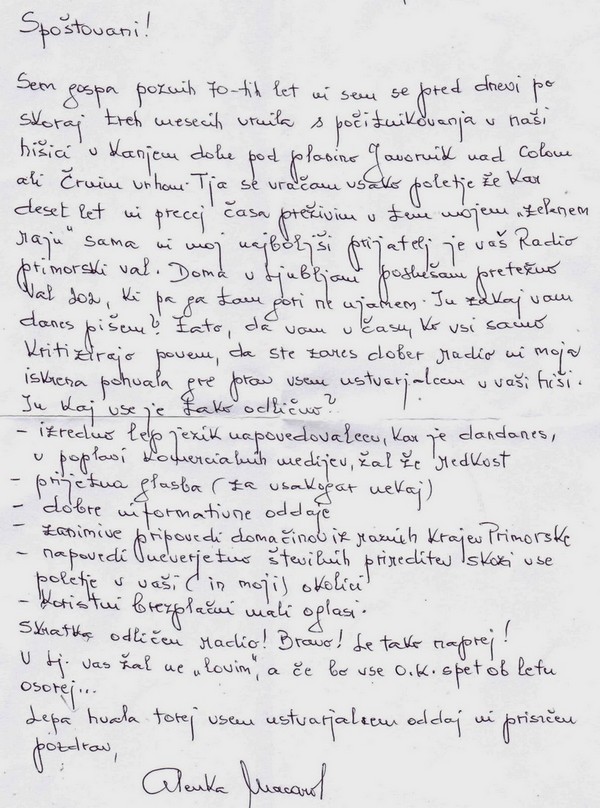 Spoštovani!
Sem gospa poznih 70-tih let in sem se pred dnevi po
skoraj treh mesecih vrnila s počitnikovanja v naši
hišici v Kanjem dolu pod planino Javornik nad Colom
ali Črnim vrhom. Tja se vračam vsako poletje že kar
deset let in precej časa preživim v tem mojem "zelenem
raju" sama in moj najboljši prijatelj je vaš Radio
primorski val. Doma v Ljubljani poslušam pretežno
Val 202, ki pa ga tam gori ne ujamem. In zakaj vam
danes pišem? Zato, da vam v času, ko vsi samo
kritizirajo povem, da ste zares dober radio in moja
iskrena pohvala gre prav vsem ustvarjalcem v vaši hiši.
In kaj vse je tako odlično?
- izredno lep jezik napovedovalcev, kar je dandanes,
v poplavi komercialnih medijev, žal že redkost
- prijetna glasba (za vsakogar nekaj)
- dobre informativne oddaje
- zanimive pripovedi domačinov iz raznih krajev Primorske
- napovedi neverjetno številnih prireditev skozi vse
poletje v vaši (in moji) okolici
- koristni brezplačni mali oglasi.
Skratka odličen radio! Bravo! Le tako naprej!
V Lj. vas žal ne "lovim", a če bo vse O.K. spet ob letu
osorej...
Lepa hvala torej vsem ustvarjalcem oddaj in prisrčen
pozdrav,
Alenka Macarol